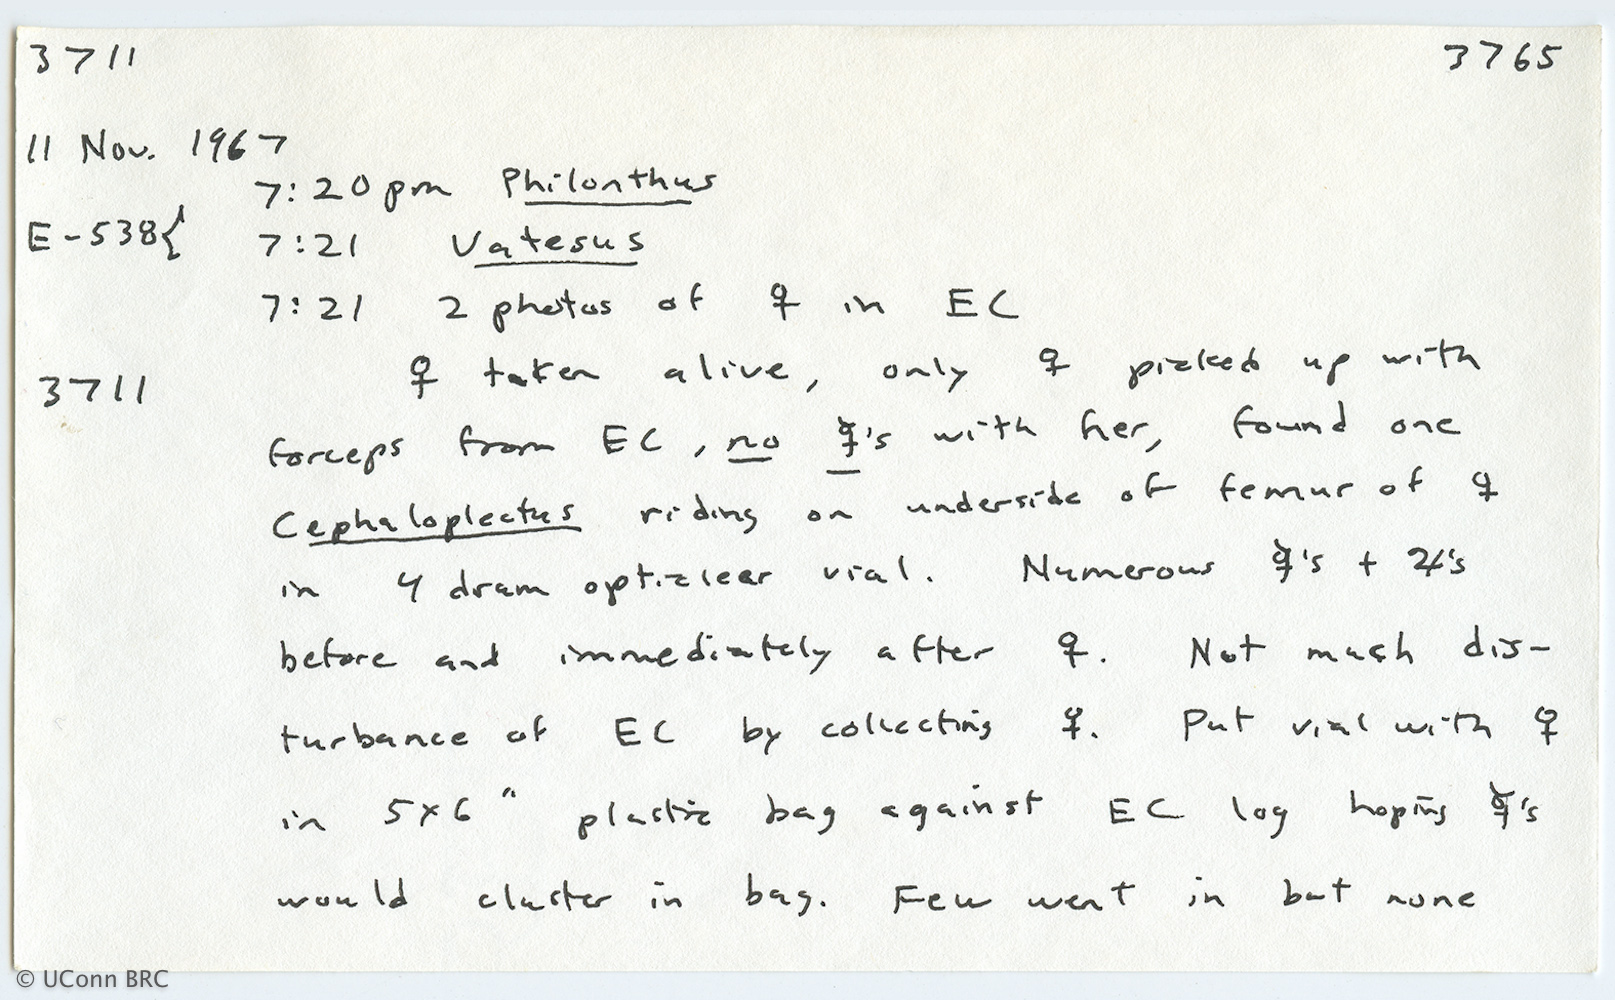 3711 3765
11 Nov. 1967
7:20 pm Philonthus
E-538{ 7:21 Vatesus
7:21 2 photos of ♀ in EC
3711 ♀ taken alive, only ♀ picked up with
forceps from EC, no ☿'s with her, found one
Cephaloplectus riding on underside of femur of ♀
in 4 dram opticlear vial. Numerous ☿'s + ♃'s
before and immediately after ♀. Not much dis-
turbance of EC by collecting ♀. Put vial with ♀
in 5x6" plastic bag against EC log hoping ☿'s
would cluster in bag. Few went in but none
© UConn BRC